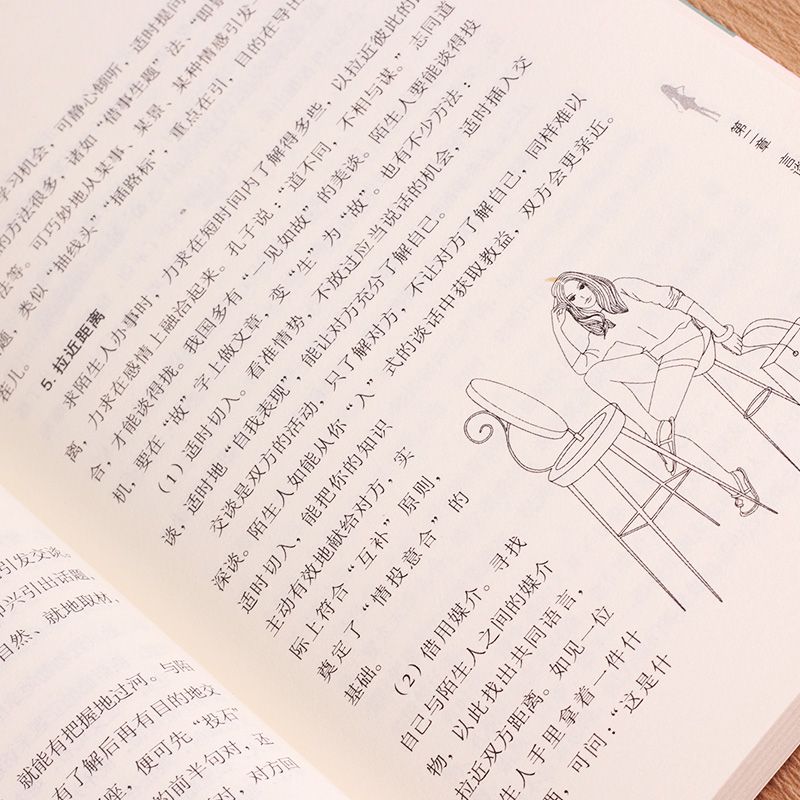 第二章 言
学习机会，可静心倾听，适时提问
的方法很多，诸如“借事生题”法、“即景
法等。可巧妙地从某事、某景、某种情感引发一
题，类似“抽线头”“插路标”，重点在引，目的在导出
茬儿。
5. 拉近距离
求陌生人办事时，力求在短时间内了解得多些，以拉近彼此的
离，力求在感情上融洽起来。孔子说：“道不同，不相与谋。”志同道
合，才能谈得拢。我国多有“一见如故”的美谈。陌生人要能谈得投
机，要在“故”字上做文章，变“生”为“故”。也有不少方法：
（1）适时切入。看准情势，不放过应当说话的机会，适时插入交
谈，适时地“自我表现”，能让对方充分了解自己。
交谈是双方的活动，只了解对方，不让对方了解自己，同样难以
深谈。陌生人如能从你“入”式的谈话中获取教益，双方会更亲近。
适时切入，能把你的知识
主动有效地献给对方，实
际上符合“互补”原则，
奠定了“情投意合”的
基础。
（2）借用媒介。寻找
自己与陌生人之间的媒介
物，以此找出共同语言，
拉近双方距离。如见一位
生人手里拿着一件什
，可问：“这是什
引发交谈。
即兴引出话题，
自然、就地取材，
就能有把握地过河。与陌
有了解后再有目的地交
座，便可先“投石”
的前半句对，还
，对方回